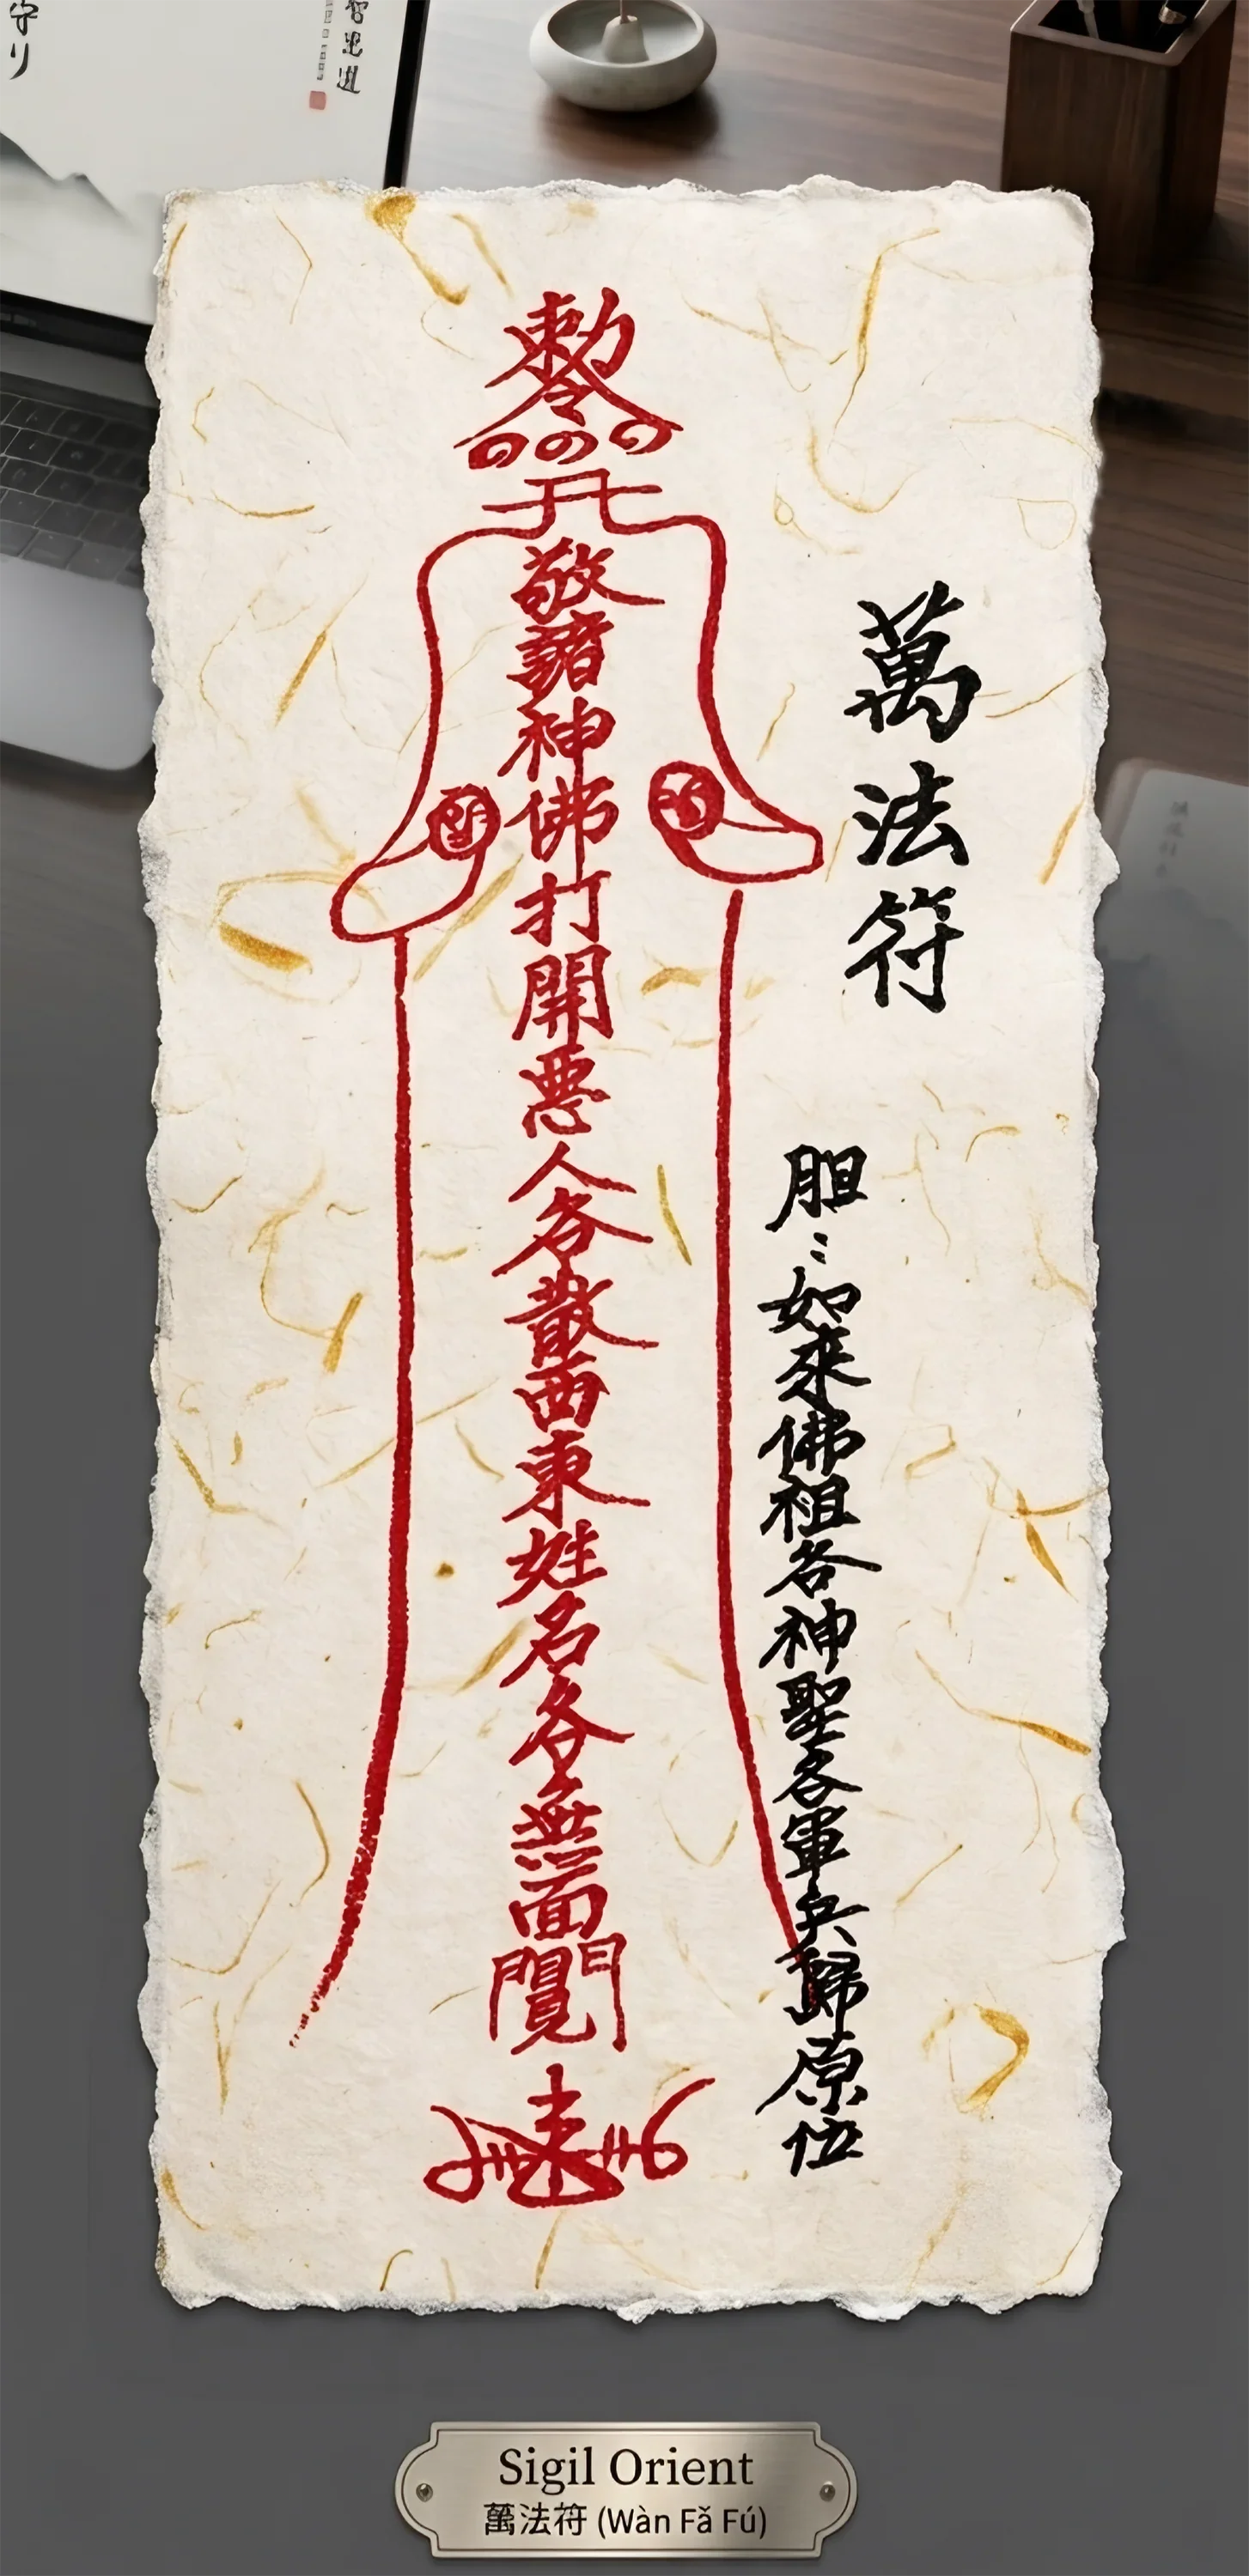 守り
萬法符
胆:如來佛祖各神聖各軍兵歸原位
敕令
敬諸神佛打開惡人各散西東姓名各無面
Sigil Orient
萬法符 (Wàn Fǎ Fú)